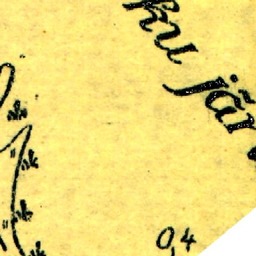 ku jär
0,4